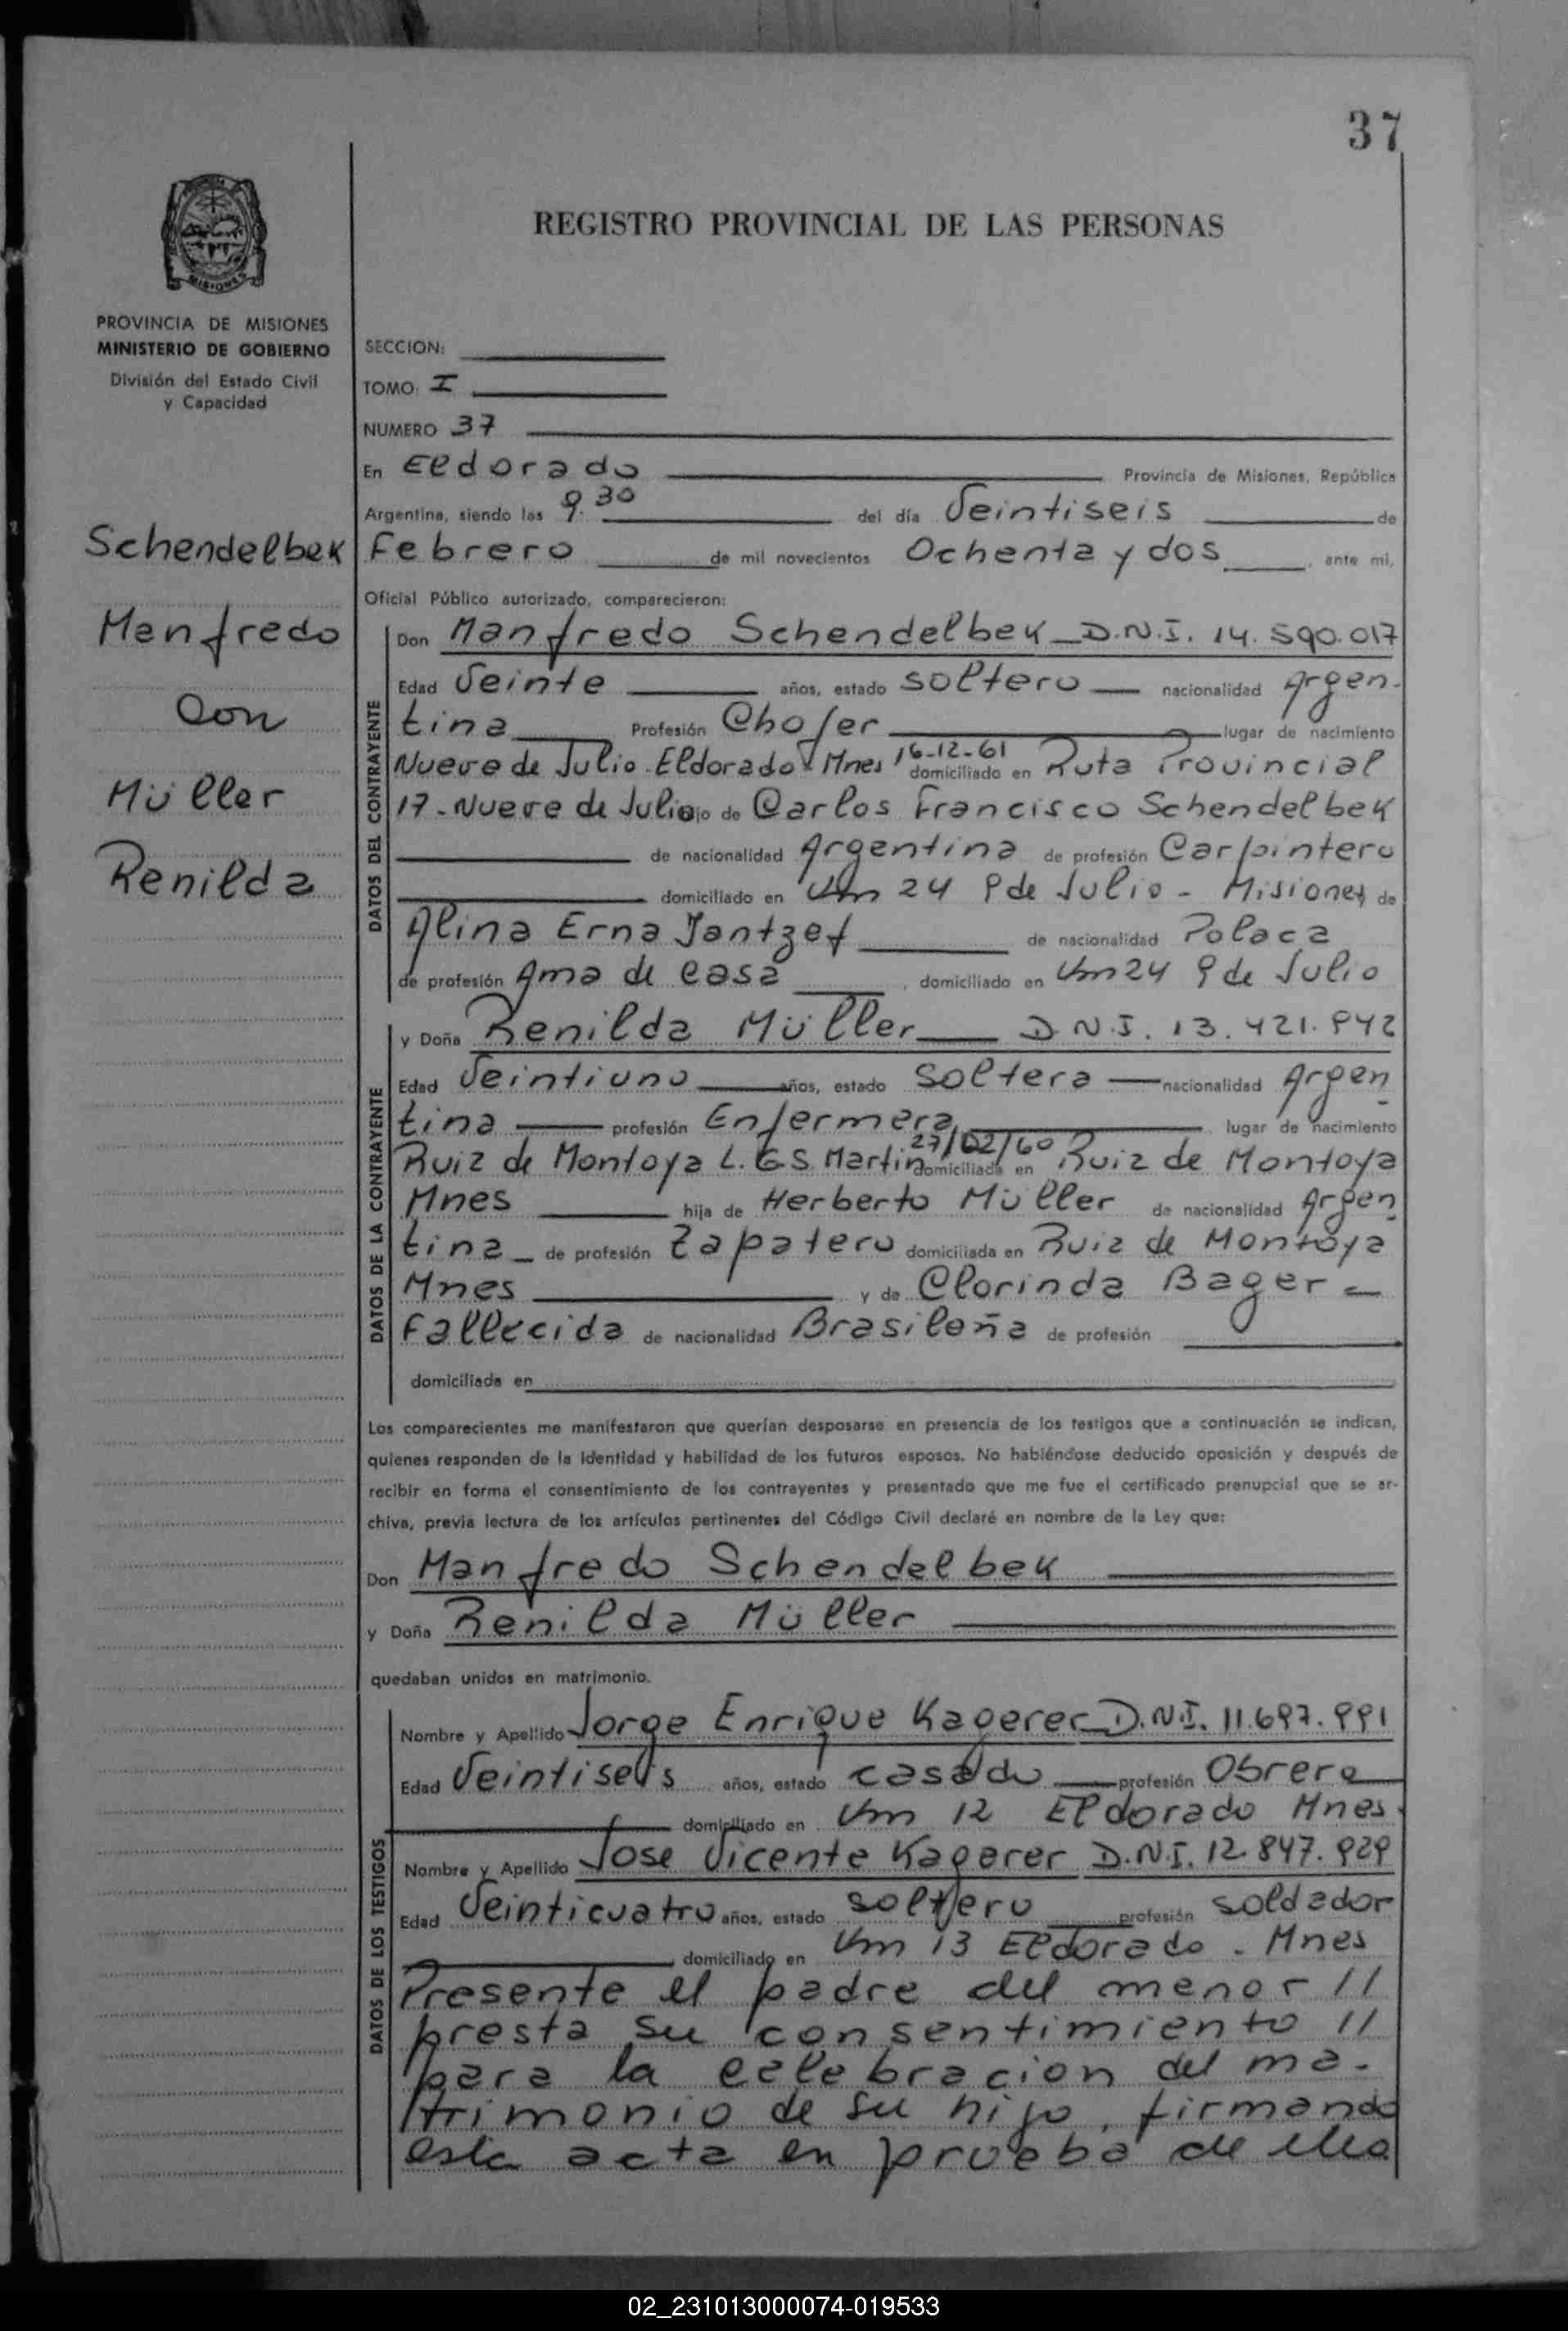 37
REGISTRO PROVINCIAL DE LAS PERSONAS
MISIONES
PROVINCIA DE MISIONES
MINISTERIO DE GOBIERNO
División del Estado Civil
y Capacidad
Schendelbek
Manfredo
Con
Müller
Renilda
SECCION:
TOMO: I
NUMERO 37
En Eldorado Provincia de Misiones, República
Argentina, siendo las 9.30 del día Veintiseis de
Febrero de mil novecientos Ochenta y dos, ante mi,
Oficial Público autorizado, comparecieron:
DATOS DEL CONTRAYENTE
Don Manfredo Schendelbek D.N.I. 14.590.017
Edad Veinte años, estado soltero nacionalidad Argen-
tina Profesión Chofer lugar de nacimiento
Nueve de Julio-Eldorado-Mnes 16-12-61 domiciliado en Ruta Provincial
17-Nueve de Julio hijo de Carlos Francisco Schendelbek
de nacionalidad Argentina de profesión Carpintero
domiciliado en Km 24 9 de Julio - Misiones de
Alina Erna Jantzef de nacionalidad Polaca
de profesión Ama de casa, domiciliado en Km 24 9 de Julio
DATOS DE LA CONTRAYENTE
y Doña Renilda Müller D.N.I. 13.421.942
Edad Veintiuno años, estado soltera nacionalidad Argen
tina profesión Enfermera lugar de nacimiento
Ruiz de Montoya L.G.S. Martin 27/02/60 domiciliada en Ruiz de Montoya
Mnes hija de Herberto Müller de nacionalidad Argen
tina de profesión Zapatero domiciliada en Ruiz de Montoya
Mnes y de Clorinda Bager
Fallecida de nacionalidad Brasileña de profesión
domiciliada en
Los comparecientes me manifestaron que querían desposarse en presencia de los testigos que a continuación se indican,
quienes responden de la Identidad y habilidad de los futuros esposos. No habiéndose deducido oposición y después de
recibir en forma el consentimiento de los contrayentes y presentado que me fue el certificado prenupcial que se ar-
chiva, previa lectura de los artículos pertinentes del Código Civil declaré en nombre de la Ley que:
Don Manfredo Schendelbek
y Doña Renilda Müller
quedaban unidos en matrimonio.
DATOS DE LOS TESTIGOS
Nombre y Apellido Jorge Enrique Kagerer D.N.I. 11.697.991
Edad Veintiseis años, estado casado profesión Obrero
domiciliado en Km 12 Eldorado Mnes.
Nombre y Apellido Jose Vicente Kagerer D.N.I. 12.847.929
Edad Veinticuatro años, estado soltero profesión soldador
domiciliado en Km 13 Eldorado. Mnes
Presente el padre del menor //
presta su consentimiento //
para la celebracion del ma-
trimonio de su hijo, firmando
esta acta en prueba de ello
02_231013000074-019533